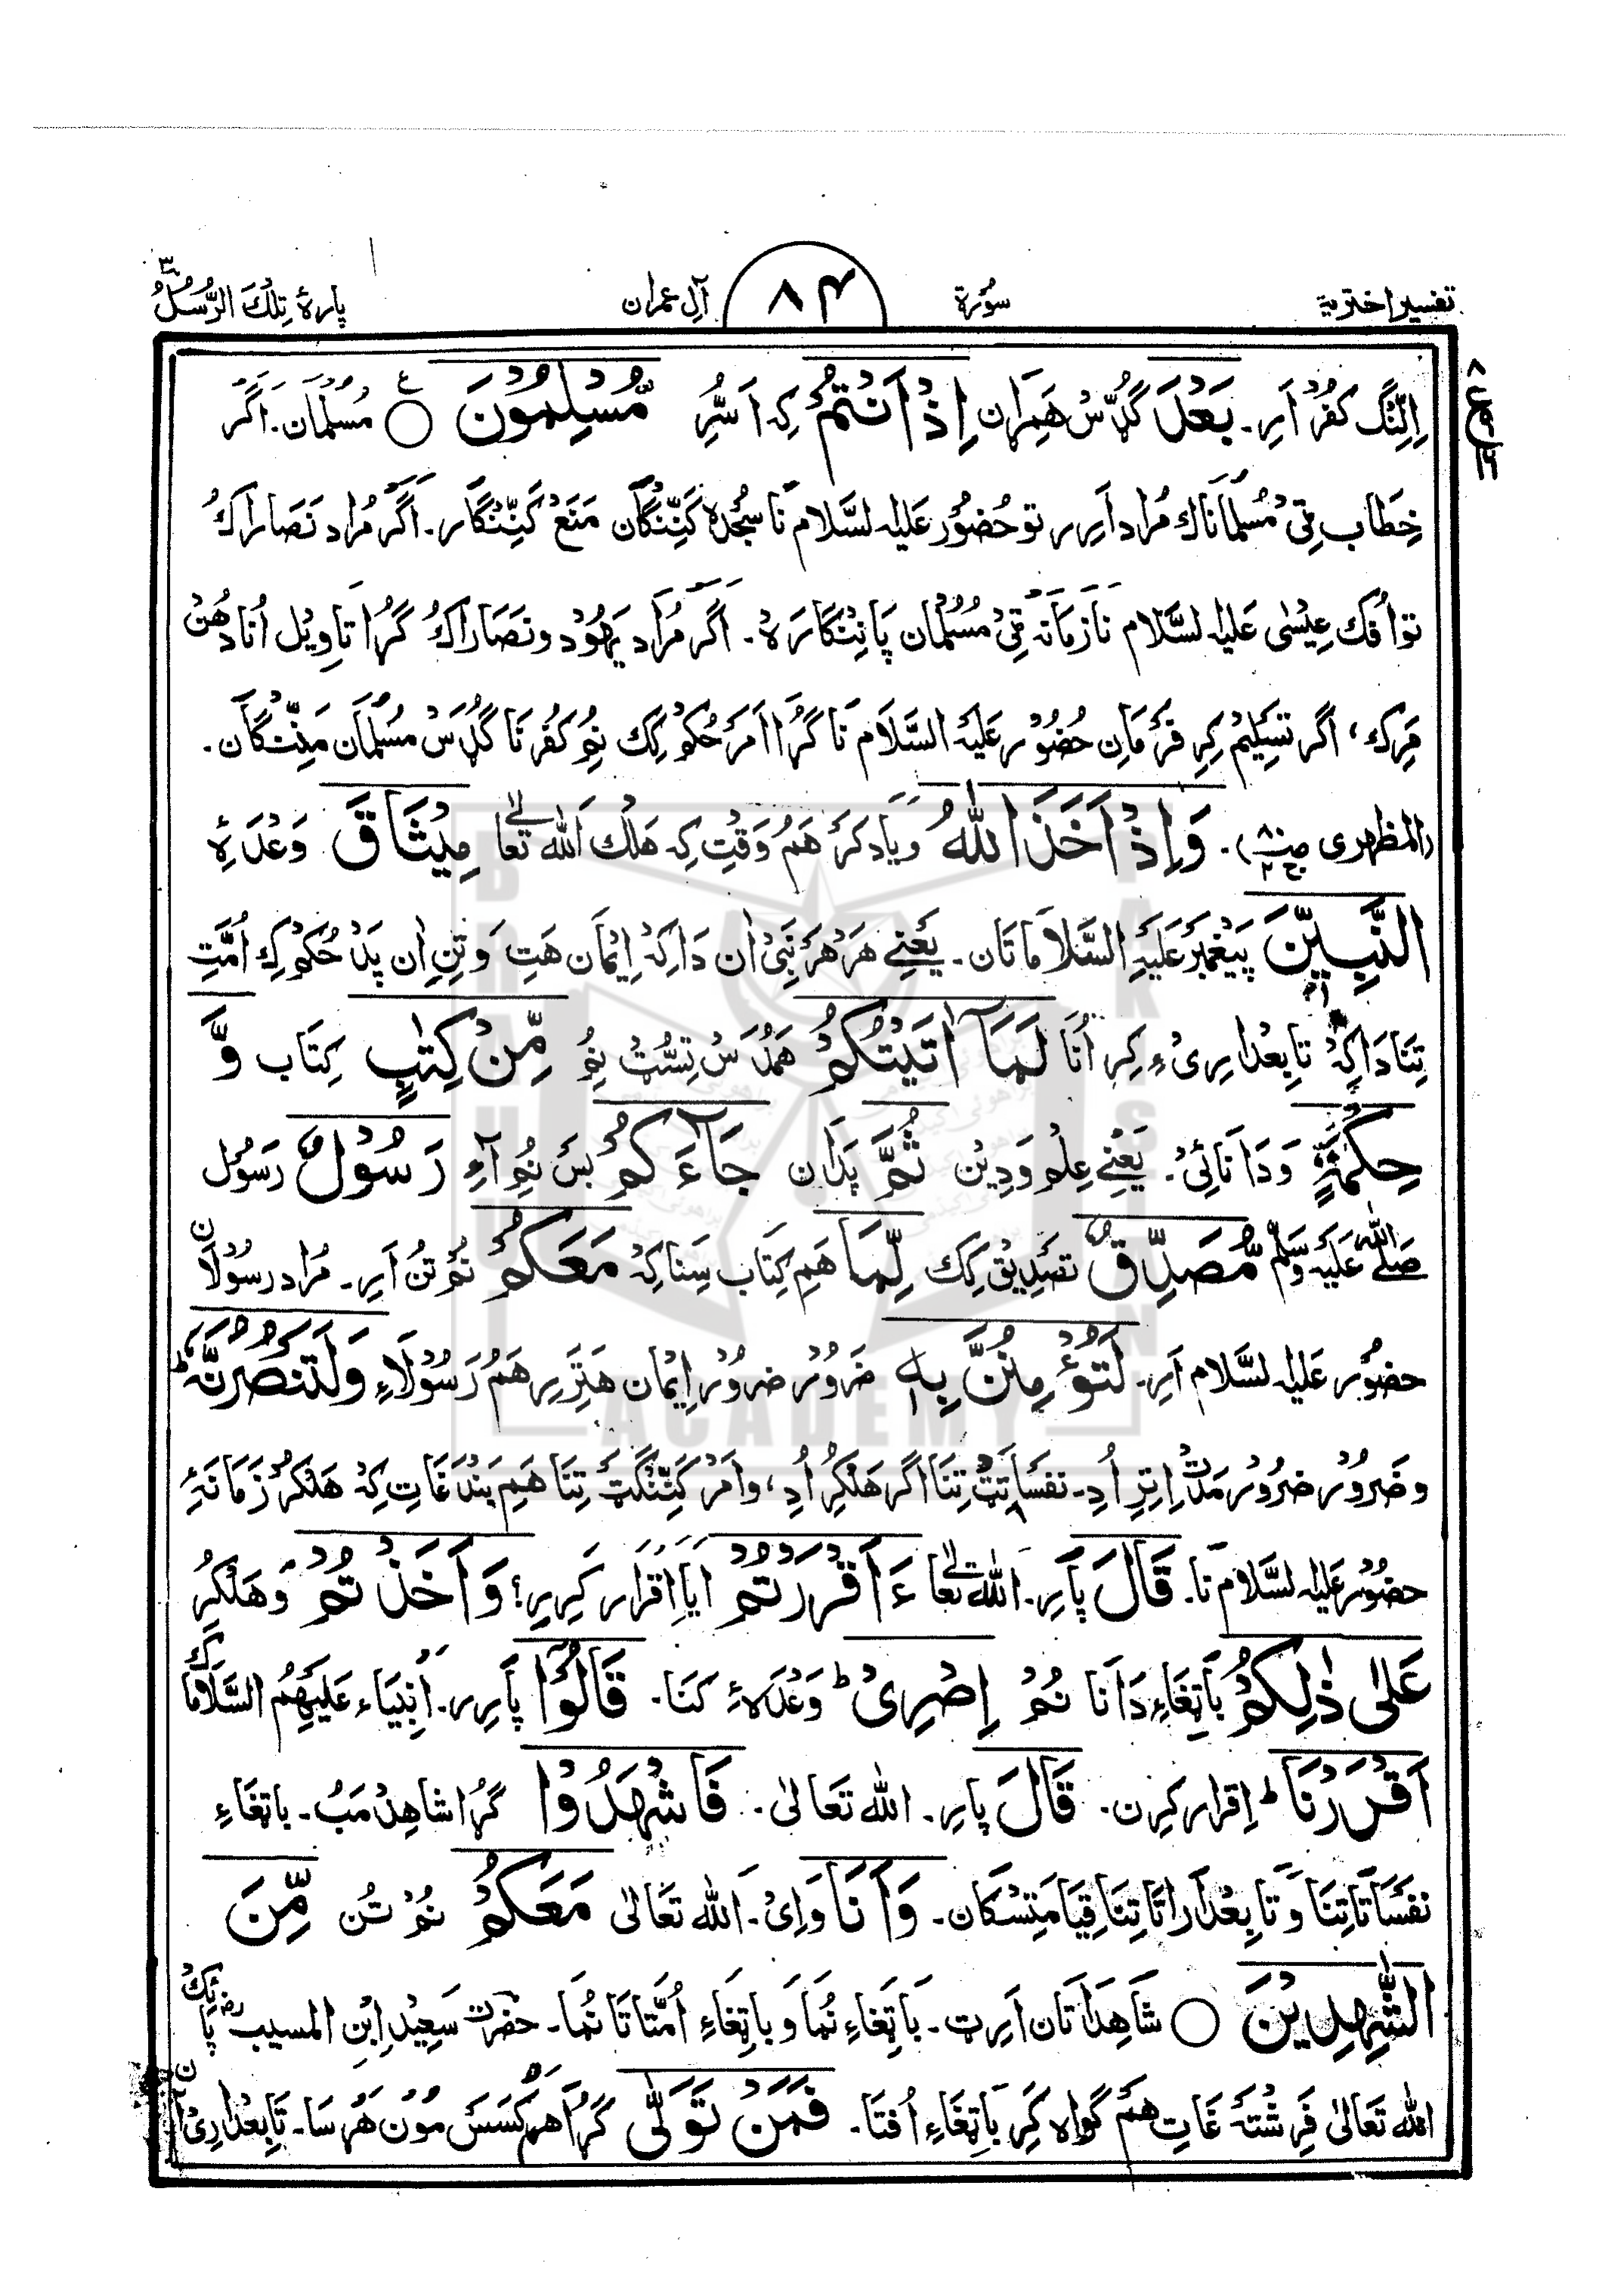 تفسیر اختریہ سُورۃ ۸۴ آلِ عمران پارۂ تِلْكَ الرُّسُلُ ۳
اِلِنّگ کفُرْ اَرِ۔ بَعْدَ گُڈّس هَمِرَان اِذْ اَنْتُمْ کِہ اَسُّرِ مُّسْلِمُوْنَ ○ مُسلمَان۔ اَگر
خِطاب ٹی مُسلمَاناک مُراد اَرِیر تو حُضُوْر عَلیہ لسَّلام نَا سجُدہ کَنِّنگان مَنَعْ کَنِّنگار۔ اگر مُراد نَصَاراکْ
تو اُفک عِیْسٰی عَلیہ لسَّلام نَا زمَانہ ٹیْ مُسْلمَان پَانِنْگارَہْ۔ اَگر مُرَاد یَہُوْد و نصَاراکْ گُڑا تَاوِیْل اُنَا دَهُنْ
مَرِک، اگر تسَلِیْم کرِ فَرْمَانِ حُضُوْر عَلَیْہ السَّلَام نَا گُڑا اَمَر حُکم کِک نُم کفُرْ نَا گُڈَسْ مسُلمَان مَنِّنْگان۔
(المظهری صـ۸۰ ج۲)۔ وَاِذْ اَخَذَ اللّٰهُ وَ یَاد کَرْ هَمُ وَقتِ کِہ هَلْک اَللہ تَعَالٰے مِیْثَاقَ وَعْدَۂِ
النَّبِیّٖنَ پَیْغمبَر عَلَیہِ السَّلَامَاتَان۔ یَعْنِے هَرْ هَرْ نَبِیْ اَن دَاکِہْ اِیْمَان هَتِ وَ تِنِ اَن پَدْ حُکم کِ اُمَّتِ
تِنَا دَاکِہْ تَابِعْدَارِیْ ءِ کِر اُنَا لَمَاۤ اٰتَیْتُكُمْ هَمُدَسْ تِسُّٹ نُمْ مِّنْ كِتٰبٍ کِتَاب وَّ
حِكْمَةٍ وَ دَانَائِیْ۔ یَعْنِے عِلْم وَ دِیْن ثُمَّ پَدَان جَآءَكُمْ بَسْ نُمِ آءِ رَسُوْلٌ رَسُوْل
صَلَّے اللّٰہ عَلَیْہ وَسَلَّمْ مُّصَدِّقٌ تصَدِیْق کِک لِّمَا هَمِ کِتَاب سِنَا کِہْ مَعَكُمْ نُمْ تُنْ اَرِ۔ مُرَاد رسُوْلَان
حضوُر عَلیہ لسَّلام اَرِ۔ لَتُؤْمِنُنَّ بِهٖ ضَرُوْر ضرُوْر اِیْمَان هَتِرِیر هَمُ رَسُوْلَاءِ وَلَتَنْصُرُنَّهٗ ؕ
و ضَرُوْر ضرُوْر مَدَتْ اِتِرِ اُدِ۔ نفسَاتِٹْ تِنَا اگر هَلْکِرُ اُدِ، وَ اَمْر کَنِّنْگَٹْ تِنَا هَمِ بَنْدَغَاتِ کِہْ هَلْکُرْ زَمَانَۂِ
حضوُر عَلیہ لسَّلام نَا۔ قَالَ پَارِ۔ اللہ تَعَالٰے ءَاَقْرَرْتُمْ ایَا اِقْرَار کَرِیرِ؟ وَاَخَذْتُمْ وَ هَلْکُرِ
عَلٰى ذٰلِكُمْ بَاتِغَاءِ دَانَا نُمْ اِصْرِیْ ؕ وَعْدَہءِ کَنَا۔ قَالُوْۤا پَارِر۔ اَنبِیَاء عَلَیْهِمُ السَّلَامَاک
اَقْرَرْنَا ؕ اِقرار کرِن۔ قَالَ پارِ۔ اللہ تَعَالٰی۔ فَاشْهَدُوْا گُڑا شاهِدْ مَبُ۔ باتغَاءِ
نفسَاتَا تِنَا وَ تَابِعْدَارَاتَا تِنَا قِیَامَتِسْکَان۔ وَاَنَا وَ اِیْ۔ اَللہ تَعَالٰی مَعَكُمْ نُمْ تُن مِّنَ
الشّٰهِدِیْنَ ○ شاهِدَاتَان اَرِٹ۔ بَاتِغَاءِ نُمَا وَ باتِغَاءِ اُمَّتَا تَا نُمَا۔ حضرت سَعِیْد اِبْنِ المسیب رض پَائِک
اللہ تَعَالٰی فَرِشْتَہ غَاتِ هَمْ گواہ کَرِ بَاتِغَاءِ اُفتَا۔ فَمَنْ تَوَلّٰى گُڑا هَرکَسَسْ مُوْن هَرسَا۔ تَابِعْدَارِیْ اَن